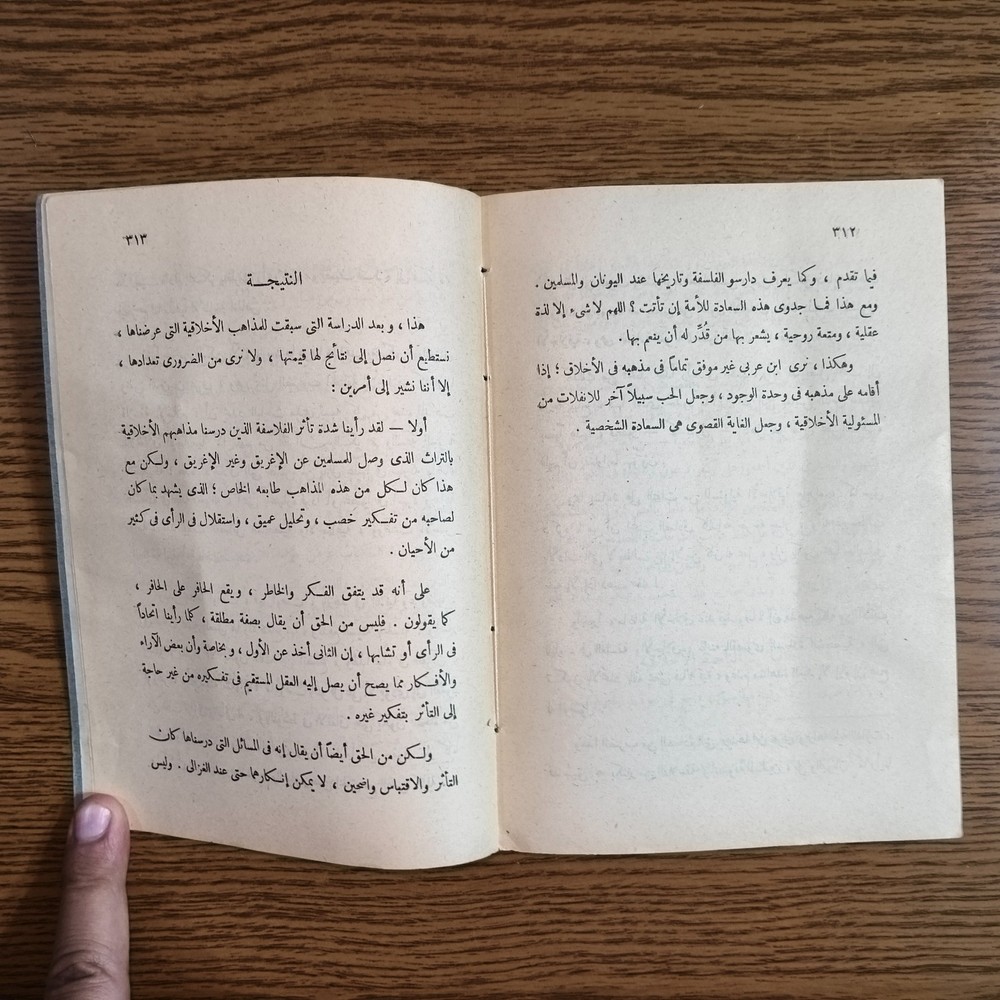 ٣١٢
فيما تقدم ، وكما يعرف دارسو الفلسفة وتاريخها عند اليونان والمسلمين .
ومع هذا فما جدوى هذه السعادة للأمة إن تأتت ؟ اللهم لا شىء إلا لذة
عقلية ، ومتعة روحية ، يشعر بها من قُدِّر له أن ينعم بها .
وهكذا ، نرى ابن عربى غير موفق تماماً فى مذهبه فى الأخلاق ؛ إذا
أقامه على مذهبه فى وحدة الوجود ، وجعل الحب سبيلاً آخر للانفلات من
المسئولية الأخلاقية ، وجعل الغاية القصوى هى السعادة الشخصية .
٣١٣
النتيجـــة
هذا ، و بعد الدراسة التى سبقت للمذاهب الأخلاقية التى عرضناها ،
نستطيع أن نصل إلى نتائج لها قيمتها ، ولا نرى من الضرورى تعدادها ،
إلا أننا نشير إلى أمرين :
أولا — لقد رأينا شدة تأثر الفلاسفة الذين درسنا مذاهبهم الأخلاقية
بالتراث الذى وصل للمسلمين عن الإغريق وغير الإغريق ، ولكن مع
هذا كان لكل من هذه المذاهب طابعه الخاص ؛ الذى يشهد بما كان
لصاحبه من تفكير خصب ، وتحليل عميق ، واستقلال فى الرأى فى كثير
من الأحيان .
على أنه قد يتفق الفكر والخاطر ، ويقع الحافر على الحافر ،
كما يقولون . فليس من الحق أن يقال بصفة مطلقة ، كلما رأينا اتحاداً
فى الرأى أو تشابها ، إن الثانى أخذ عن الأول ، و بخاصة وأن بعض الآراء
والأفكار مما يصح أن يصل إليه العقل المستقيم فى تفكيره من غير حاجة
إلى التأثر بتفكير غيره .
ولكن من الحق أيضاً أن يقال إنه فى المسائل التى درسناها كان
التأثر والاقتباس واضحين ، لا يمكن إنكارهما حتى عند الغزالى . وليس